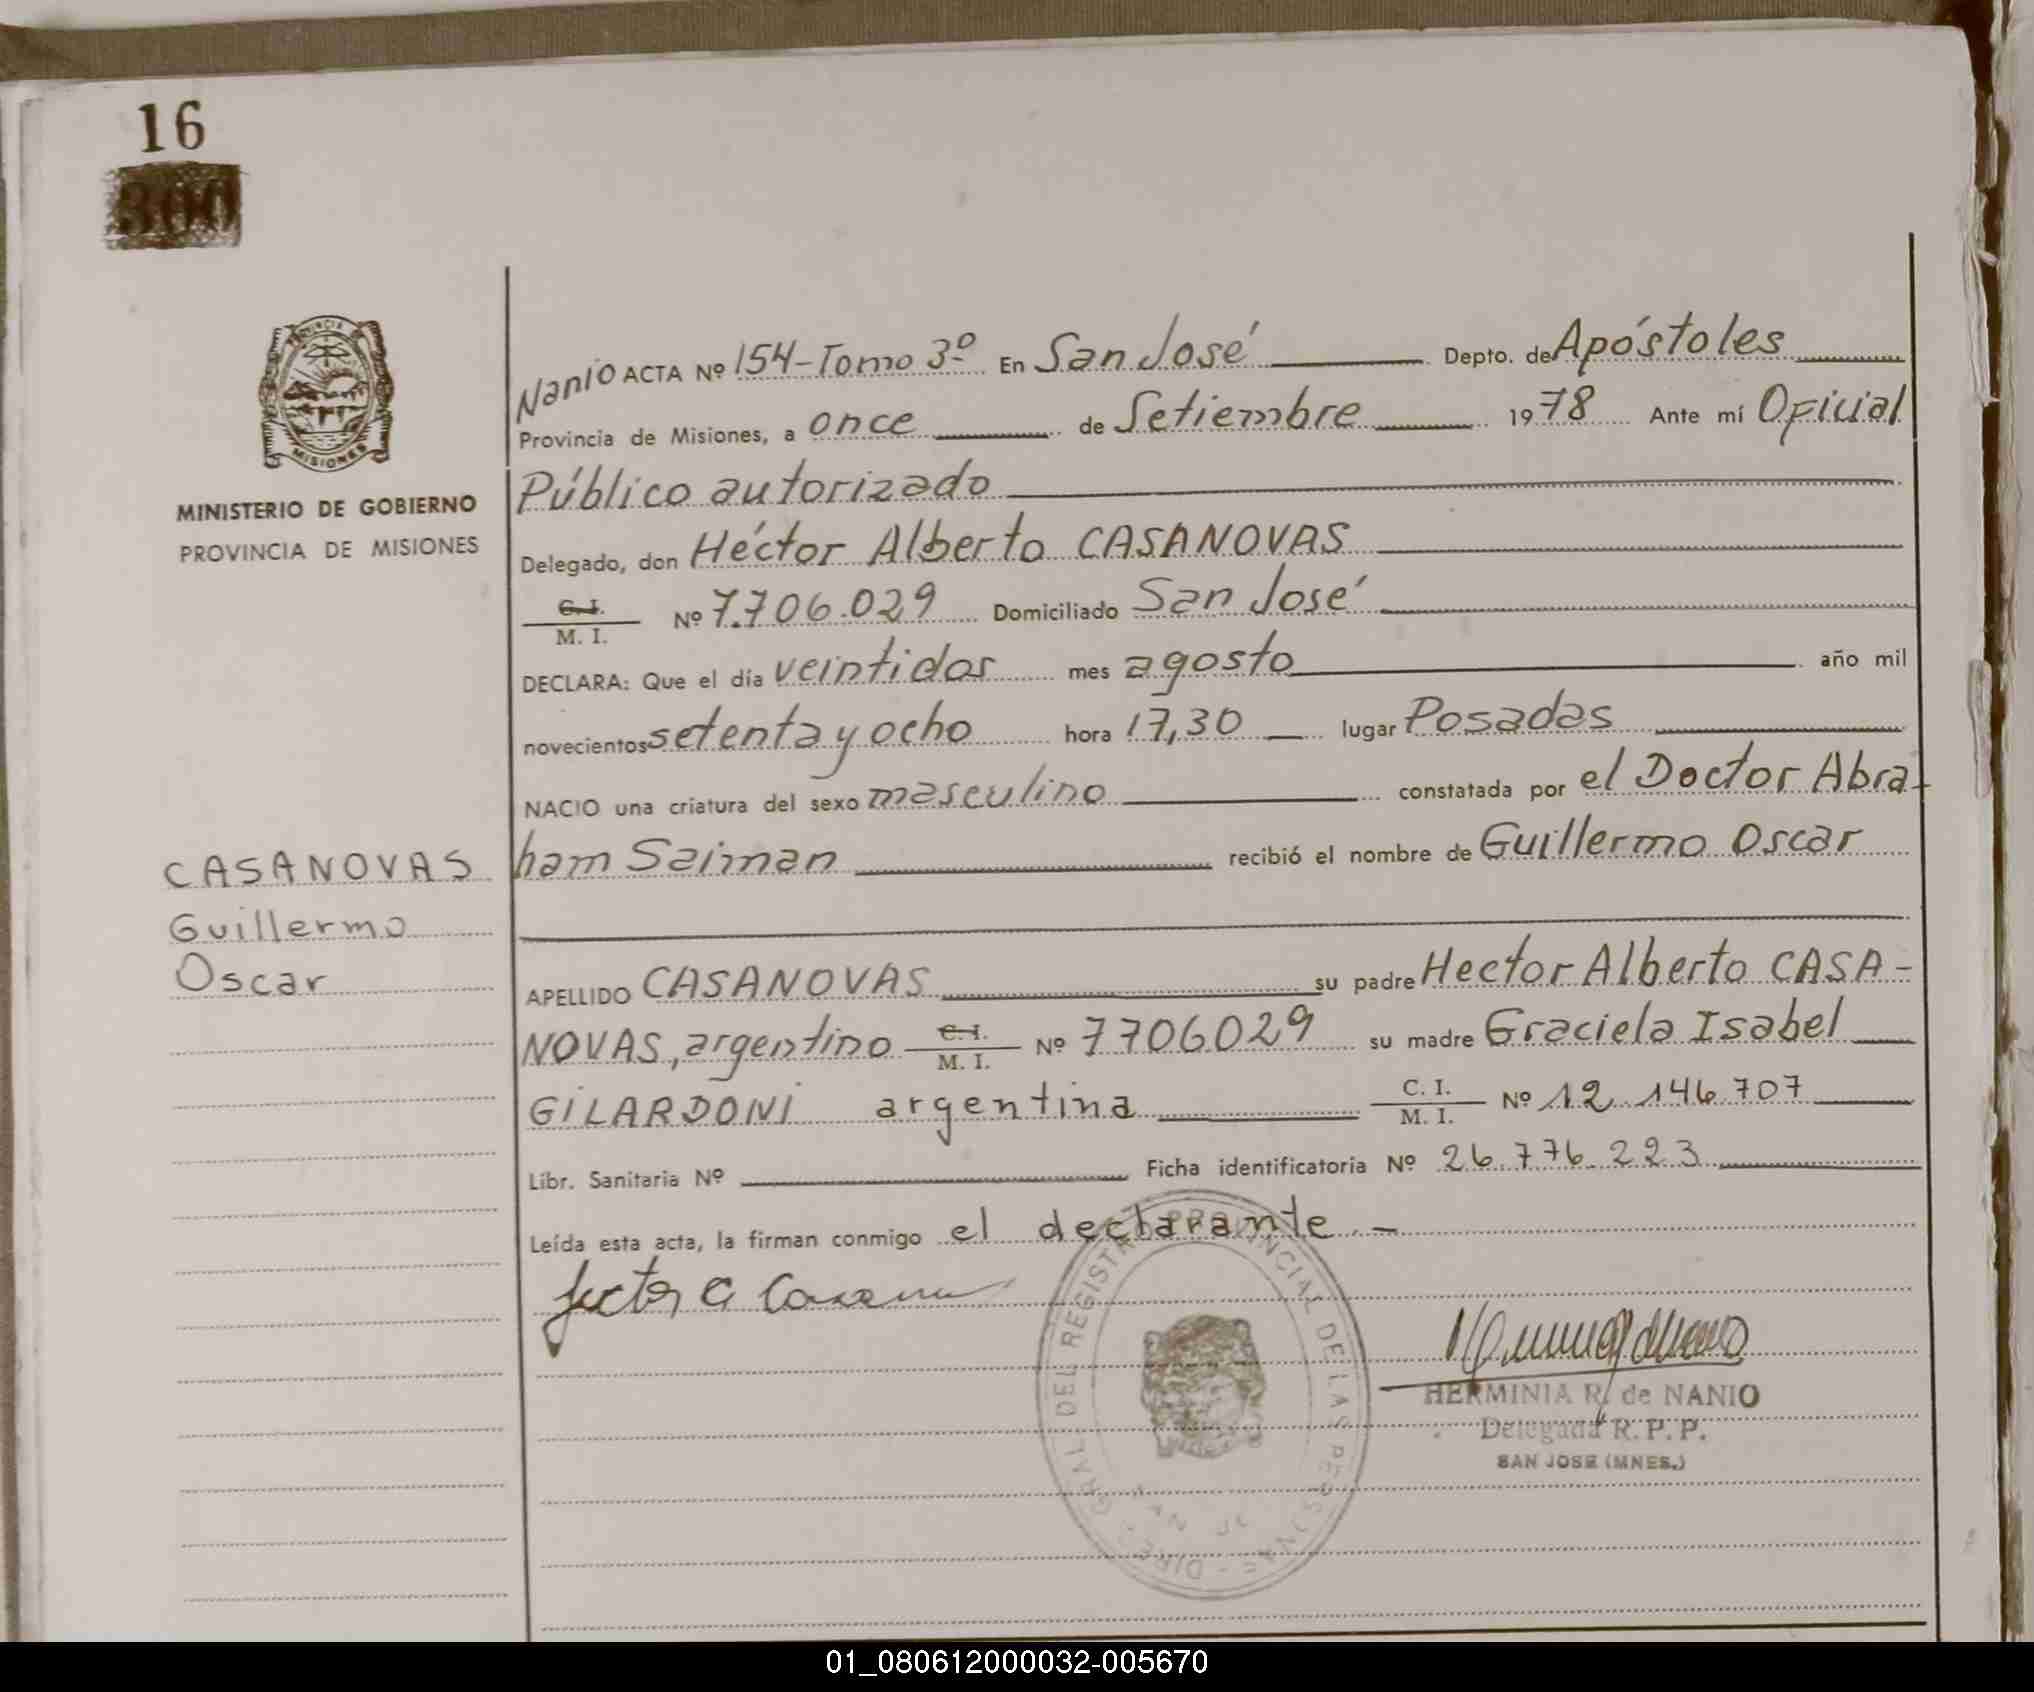 16
300
PROVINCIA DE
MISIONES
MINISTERIO DE GOBIERNO
PROVINCIA DE MISIONES
CASANOVAS
Guillermo
Oscar
Nanio ACTA Nº 154-Tomo 3º En San José Depto. de Apóstoles
Provincia de Misiones, a once de Setiembre 1978 Ante mí Oficial
Público autorizado
Delegado, don Héctor Alberto CASANOVAS
C. I.
M. I. Nº 7.706.029 Domiciliado San José
DECLARA: Que el día veintidos mes agosto año mil
novecientos setenta y ocho hora 17,30 lugar Posadas
NACIO una criatura del sexo masculino constatada por el Doctor Abra-
ham Saiman recibió el nombre de Guillermo Oscar
APELLIDO CASANOVAS su padre Hector Alberto CASA-
NOVAS, argentino C. I. M. I. Nº 7706029 su madre Graciela Isabel
GILARDONI argentina C. I. M. I. Nº 12 146.707
Libr. Sanitaria Nº Ficha identificatoria Nº 26.776.223
Leída esta acta, la firman conmigo el declarante.-
DIREC. GRAL DEL REGISTRO PROVINCIAL DE LAS PERSONAS
SAN JO
HERMINIA R. de NANIO
Delegada R. P. P.
SAN JOSE (MNES.)
01_080612000032-005670